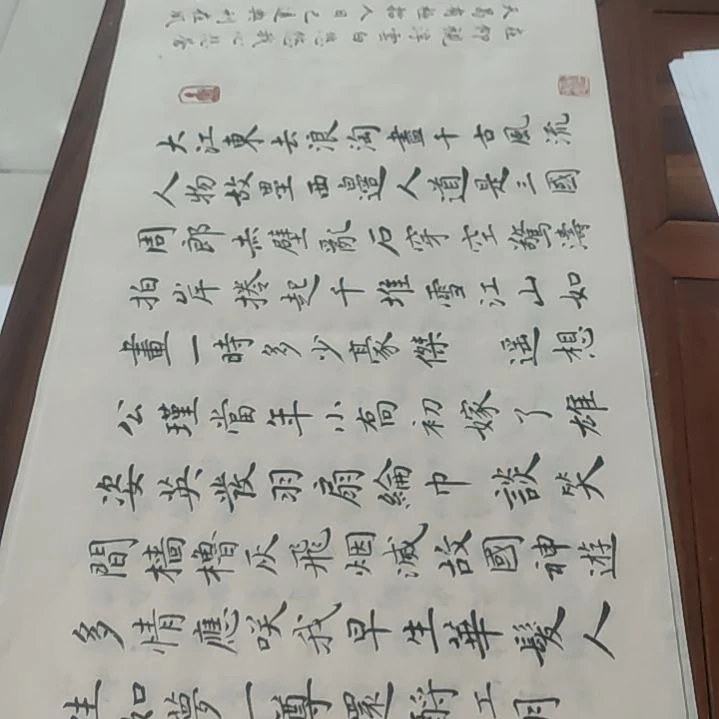 大江東去浪淘盡千古風流
人物故壘西邊人道是三國
周郎赤壁亂石穿空驚濤
拍岸捲起千堆雪江山如
畫一時多少豪傑 遥想
公瑾當年小喬初嫁了雄
姿英發羽扇綸巾 談笑
間檣櫓灰飛烟滅故國神遊
多情應咲我早生華髮人
生如夢一尊還酹江月